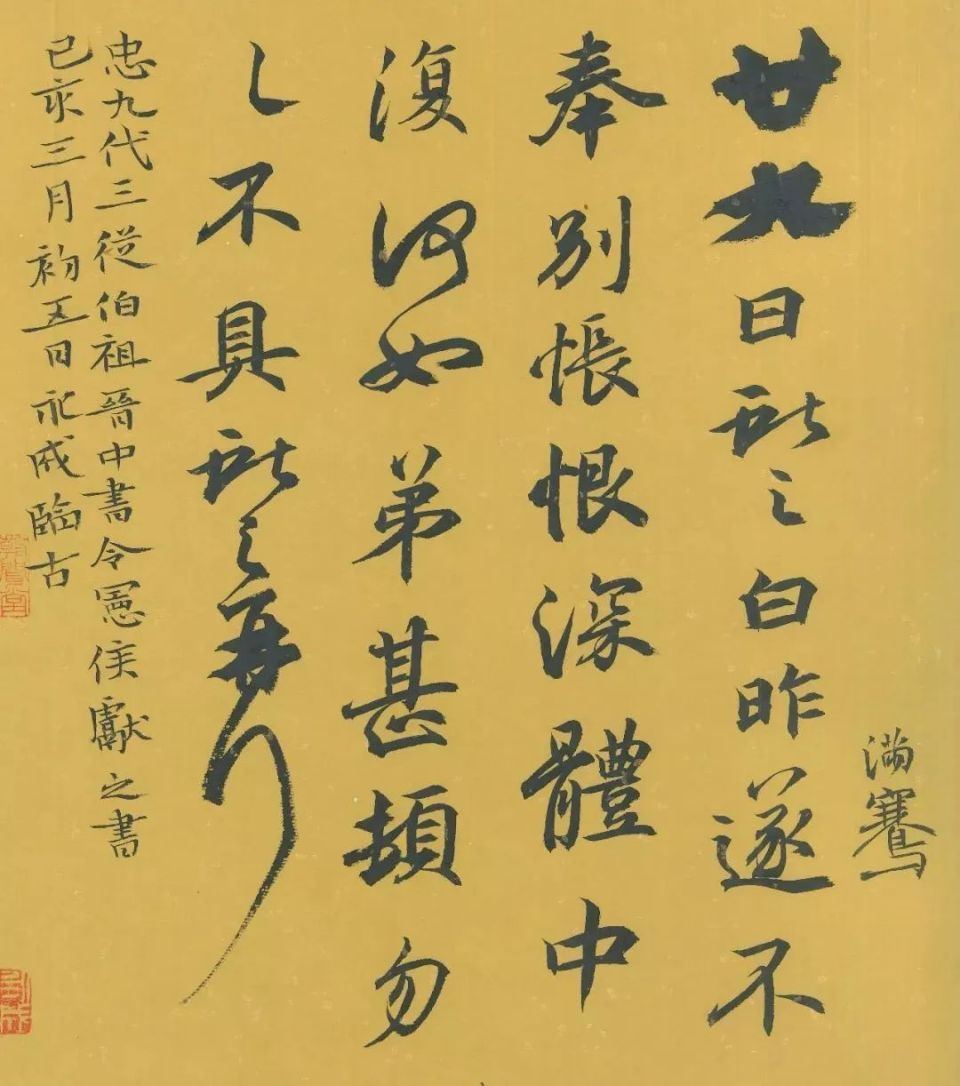 滿騫
廿九日獻之白昨遂不
奉別悵恨深體中
復何如弟甚頓勿
々不具獻之再拜
忠九代三從伯祖晉中書令憲侯獻之書
己亥三月初五日永成臨古